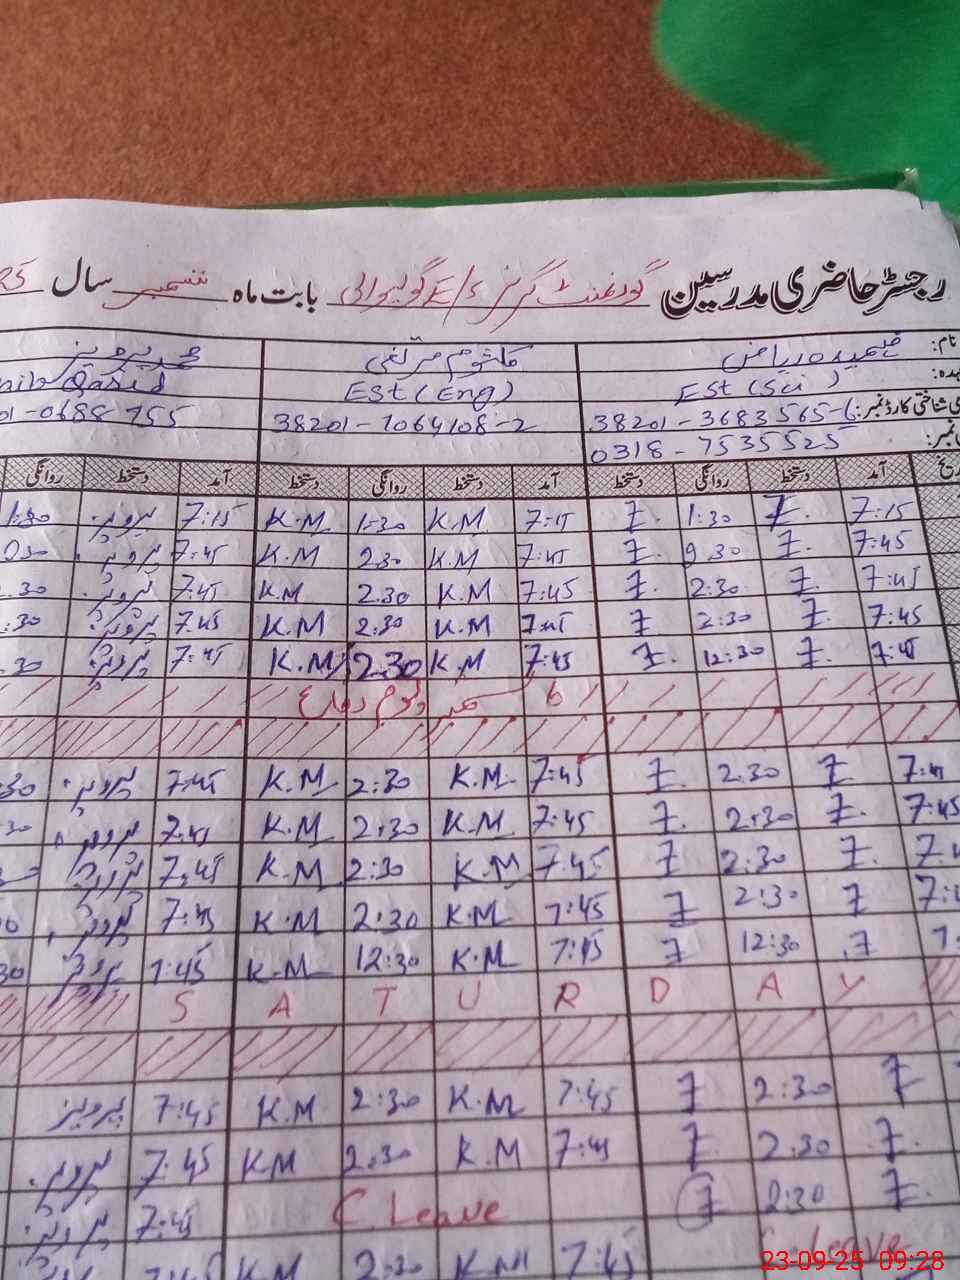 رجسٹر حاضری مدرسین گورنمنٹ گرلز E/S گولیوالی بابت ماہ ستمبر سال 25
نام: حمیدہ ریاض کلثوم مرتضی محمد پرویز
ہدہ: ESt (Sci) ESt (Eng) Naib Qasid
شناختی کارڈ نمبر: 38201-3683565-6 38201-7064108-2 01-0688755
نمبر: 0318-7535525
آمد دستخط روانگی دستخط آمد دستخط روانگی دستخط آمد دستخط روانگی
7:15 F. 1:30 F. 7:15 K.M 1:30 K.M 7:15 پرویز 1:30
7:45 F. 2:30 F. 7:45 K.M 2:30 K.M 7:45 پرویز 2:30
7:45 F. 2:30 F. 7:45 K.M 2:30 K.M 7:45 پرویز 2.30
7:45 F. 2:30 F. 7:45 K.M 2:30 K.M 7:45 پرویز :30
7:45 F. 12:30 F. 7:45 K.M 12:30 K.M 7:45 پرویز .30
6 ستمبر یوم دفاع
7:45 F 2:30 F 7:45 K.M 2:30 K.M 7:45 پرویز :30
7:45 F. 2:30 F. 7:45 K.M 2:30 K.M 7:45 پرویز :30
7:4 F. 2:30 F 7:45 K.M 2:30 K.M 7:45 پرویز
7:4 F 2:30 F 7:45 K.M 2:30 K.M 7:45 پرویز
7: F 12:30 F 7:45 K.M 12:30 K.M 7:45 پرویز 30
S A T U R D A Y
F 2:30 F 7:45 K.M 2:30 K.M 7:45 پرویز
F. 2:30 F. 7:45 K.M 2:30 K.M 7:45 پرویز
F. 2:30 F C Leave 7:45 پرویز
Leave 7:45 K.M 2:30 K.M 7:45 پرویز
23-09-25 09:28